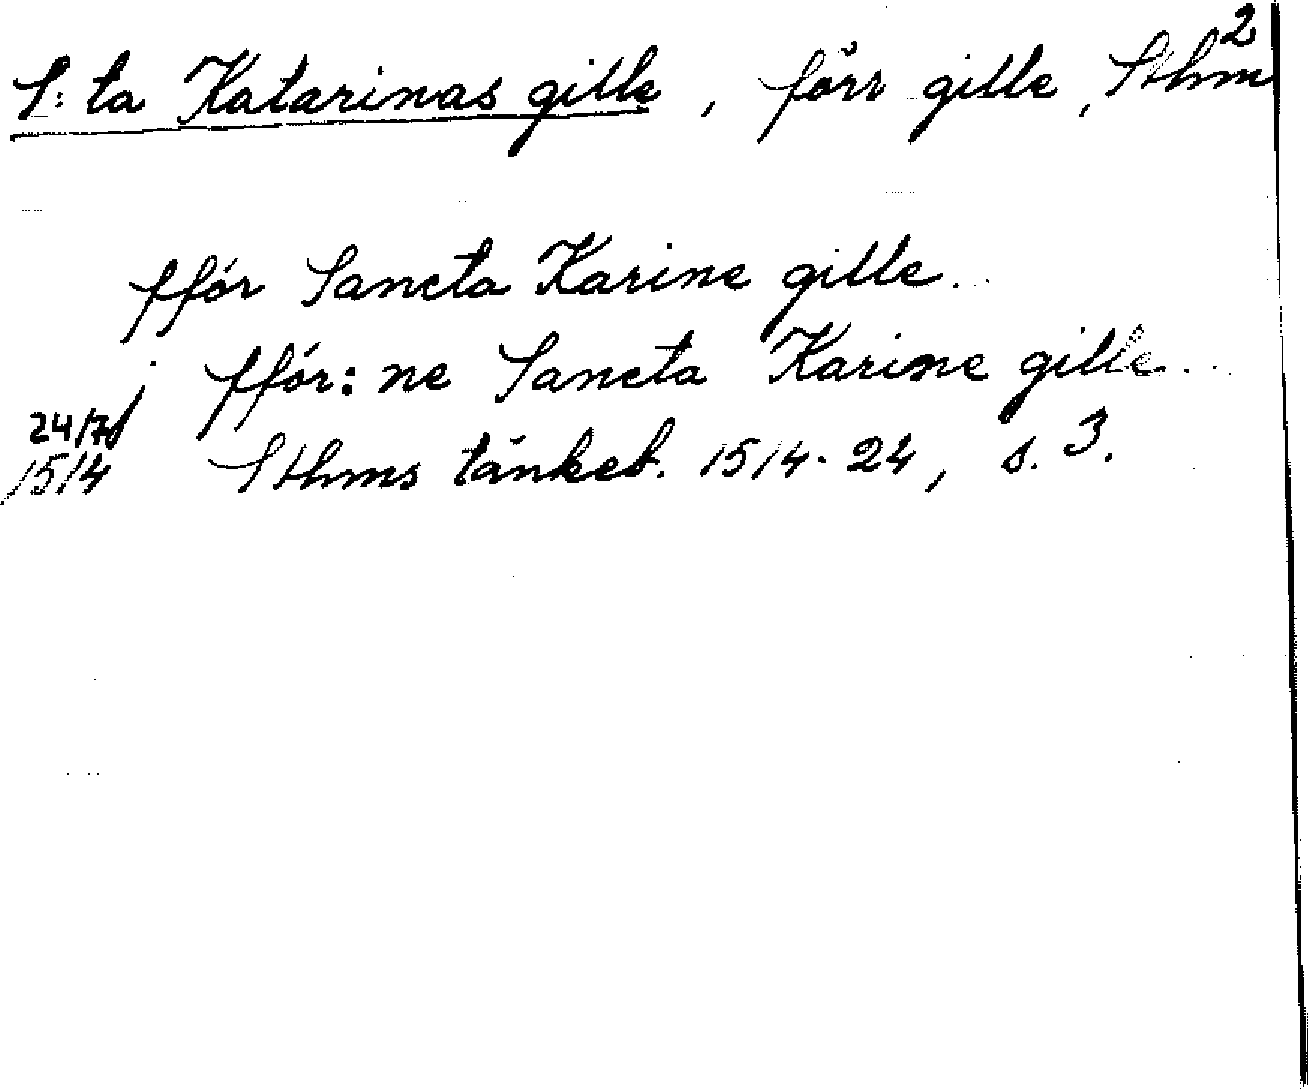 2
S:ta Katarinas gille, förr gille, Sthm
ffór Sancta Karine gille...
j ffór:ne Sancta Karine gille...
24/7
1514 Sthms tänkeb. 1514-24, s. 3.